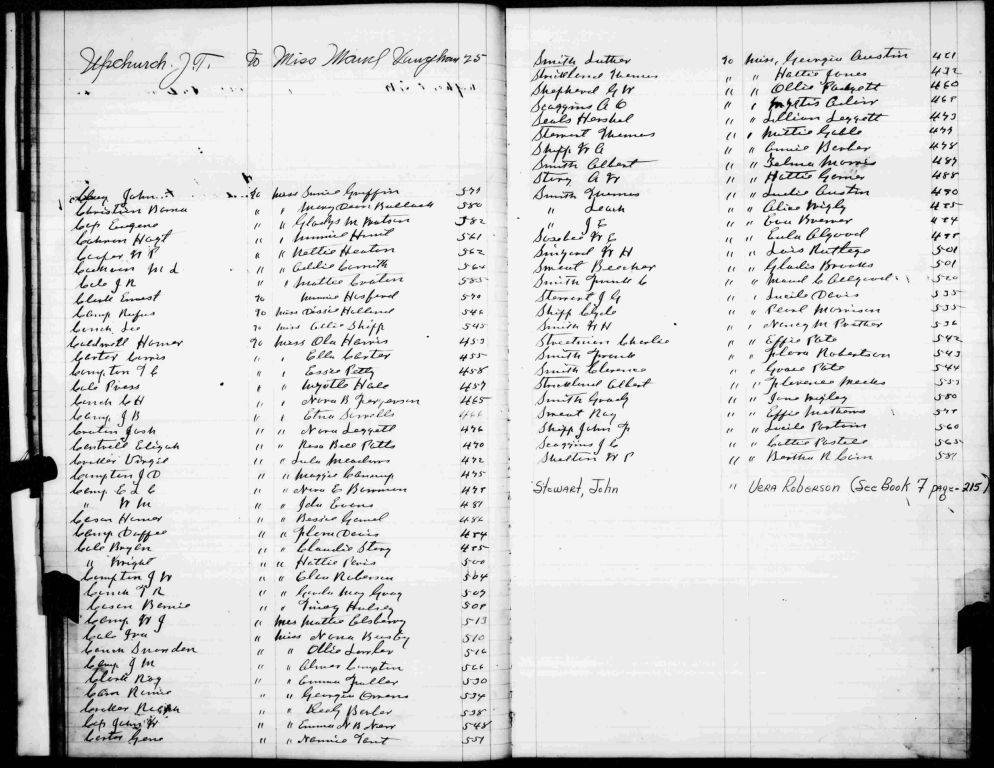 Upchurch. J.T. To Miss Maud Vaughan 25
John To Miss Griffin 579
Christian " " Mary Dean Bullock 580
Cox Eugene " " Gladys M Watson 582
Cochran Hoyt " " Minnie 561
Cooper W P " " Nettie Heaton 562
M L " " Addie 564
Cole J. R " " Mattie 585
Clark Ernest To Minnie Hosford 570
Camp Rufus To Miss Dessie Holland 546
Couch Leo To Miss Ollie Shipp 545
Caldwell Homer To Miss Ola Harris 453
Carter " " Ella Carter 455
Compton T C " " Essie Petty 458
Cole Press " " Myrtle Hale 457
Couch C H " " Nora B Jergerson 465
Camp J B " " Etna Sorrells 466
Josh " " Nora Leggett 476
Cantrell Elizah " " Rosa Bell Potts 470
Virgil " " Lula Meadows 472
Compton J D " " Maggie 475
Camp C L C " " Nora E Bowman 478
" W M " " Ida Evans 481
Cason Homer " " Bessie 486
Camp Duffee " " Flora Davis 484
Cole " " Claudie Story 485
" Wright " " Hattie 500
Compton J W " " Cleo Roberson 504
Couch T R " " May Gray 507
Cason Bernie " " Hulsey 508
Camp W J " Mrs Mattie Elsberry 513
Cole Ira " Miss Nora Busby 510
Couch Snowden " " Ollie Lawler 516
Camp J M " " Compton 526
Clark Roy " " Emma Fuller 530
Cain " " Georgia Owens 534
" " Ready Barber 538
Cox John W " " Emma N B New 548
Carter Gene " " Nannie Tant 551
Smith Luther To Miss, Georgia Austin 421
Strickland Thomas " " Hattie Jones 432
Shepherd G W " " Ollie Padgett 460
Scoggins A C " " Myrtis 468
Seals Hershel " " Lillian Leggett 473
Stewart Thomas " " Mittie Gable 479
Shipp W A " " Annie Barber 478
Smith Albert " " Zelma Morris 487
Story A W " " Hattie Garner 488
Smith Thomas " " Lucile Austin 490
" Leach " " Alice Wigly 485
" J E " " Eva 484
W E " " Eula Algood 498
W H " " Lois Rutledge 501
Smeat Beecher " " Gladis Brooks 501
Smith Frank C " " Maud C Allgood 520
Stewart J G " " Lucile Davis 535
Shipp Clyde " " Pearl Morrison 535
Smith W H " " Nancy M Prather 536
Streetman Charlie " " Effie Pate 542
Smith Frank " " Flora Robertson 543
Smith Clarence " " Grace Pate 544
Strickland Albert " " Florence Meeks 557
Smith Grady " " Jane Wigley 550
Smeat Roy " " Effie Mathews 577
Shipp John Jr " " Lucile Parsons 560
Scoggins J C " " 565
Shelton W P " " Bertha R Cain 581
Stewart, John " Vera Roberson (See Book 7 page-215)